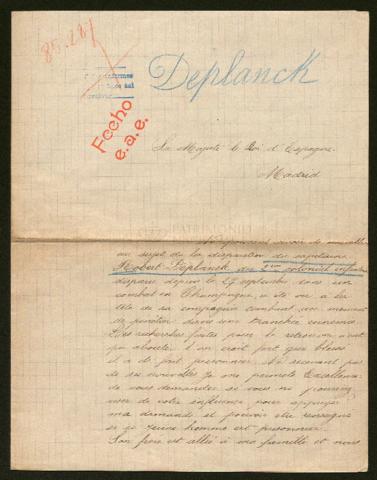 85.287
Deplanck
informes
Fecho
e.a.e.
Sa Majesté le Roi d'Espagne.
Madrid
PATRIMONIO
au sujet de la disparition du capitaine
Robert Deplanck du colonial
disparu depuis le 27 septembre dans un
combat en Champagne, a été vu à la
tête de sa compagnie
de dans une tranchée ennemie.
Les recherches faites pour le retrouver n'ont
pu aboutir. l'on croit fort que blessé
il a été fait prisonnier. Ne recevant pas
de ses nouvelles je me permets Excellence
de vous demander si vous ne pourriez
user de votre influence pour appuyer
ma demande et pouvoir être renseigné
si ce jeune homme est prisonnier.
Son frère est allié à ma famille et nous